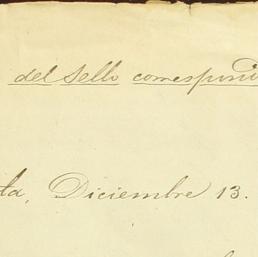 del sello correspond
ta, Diciembre 13.